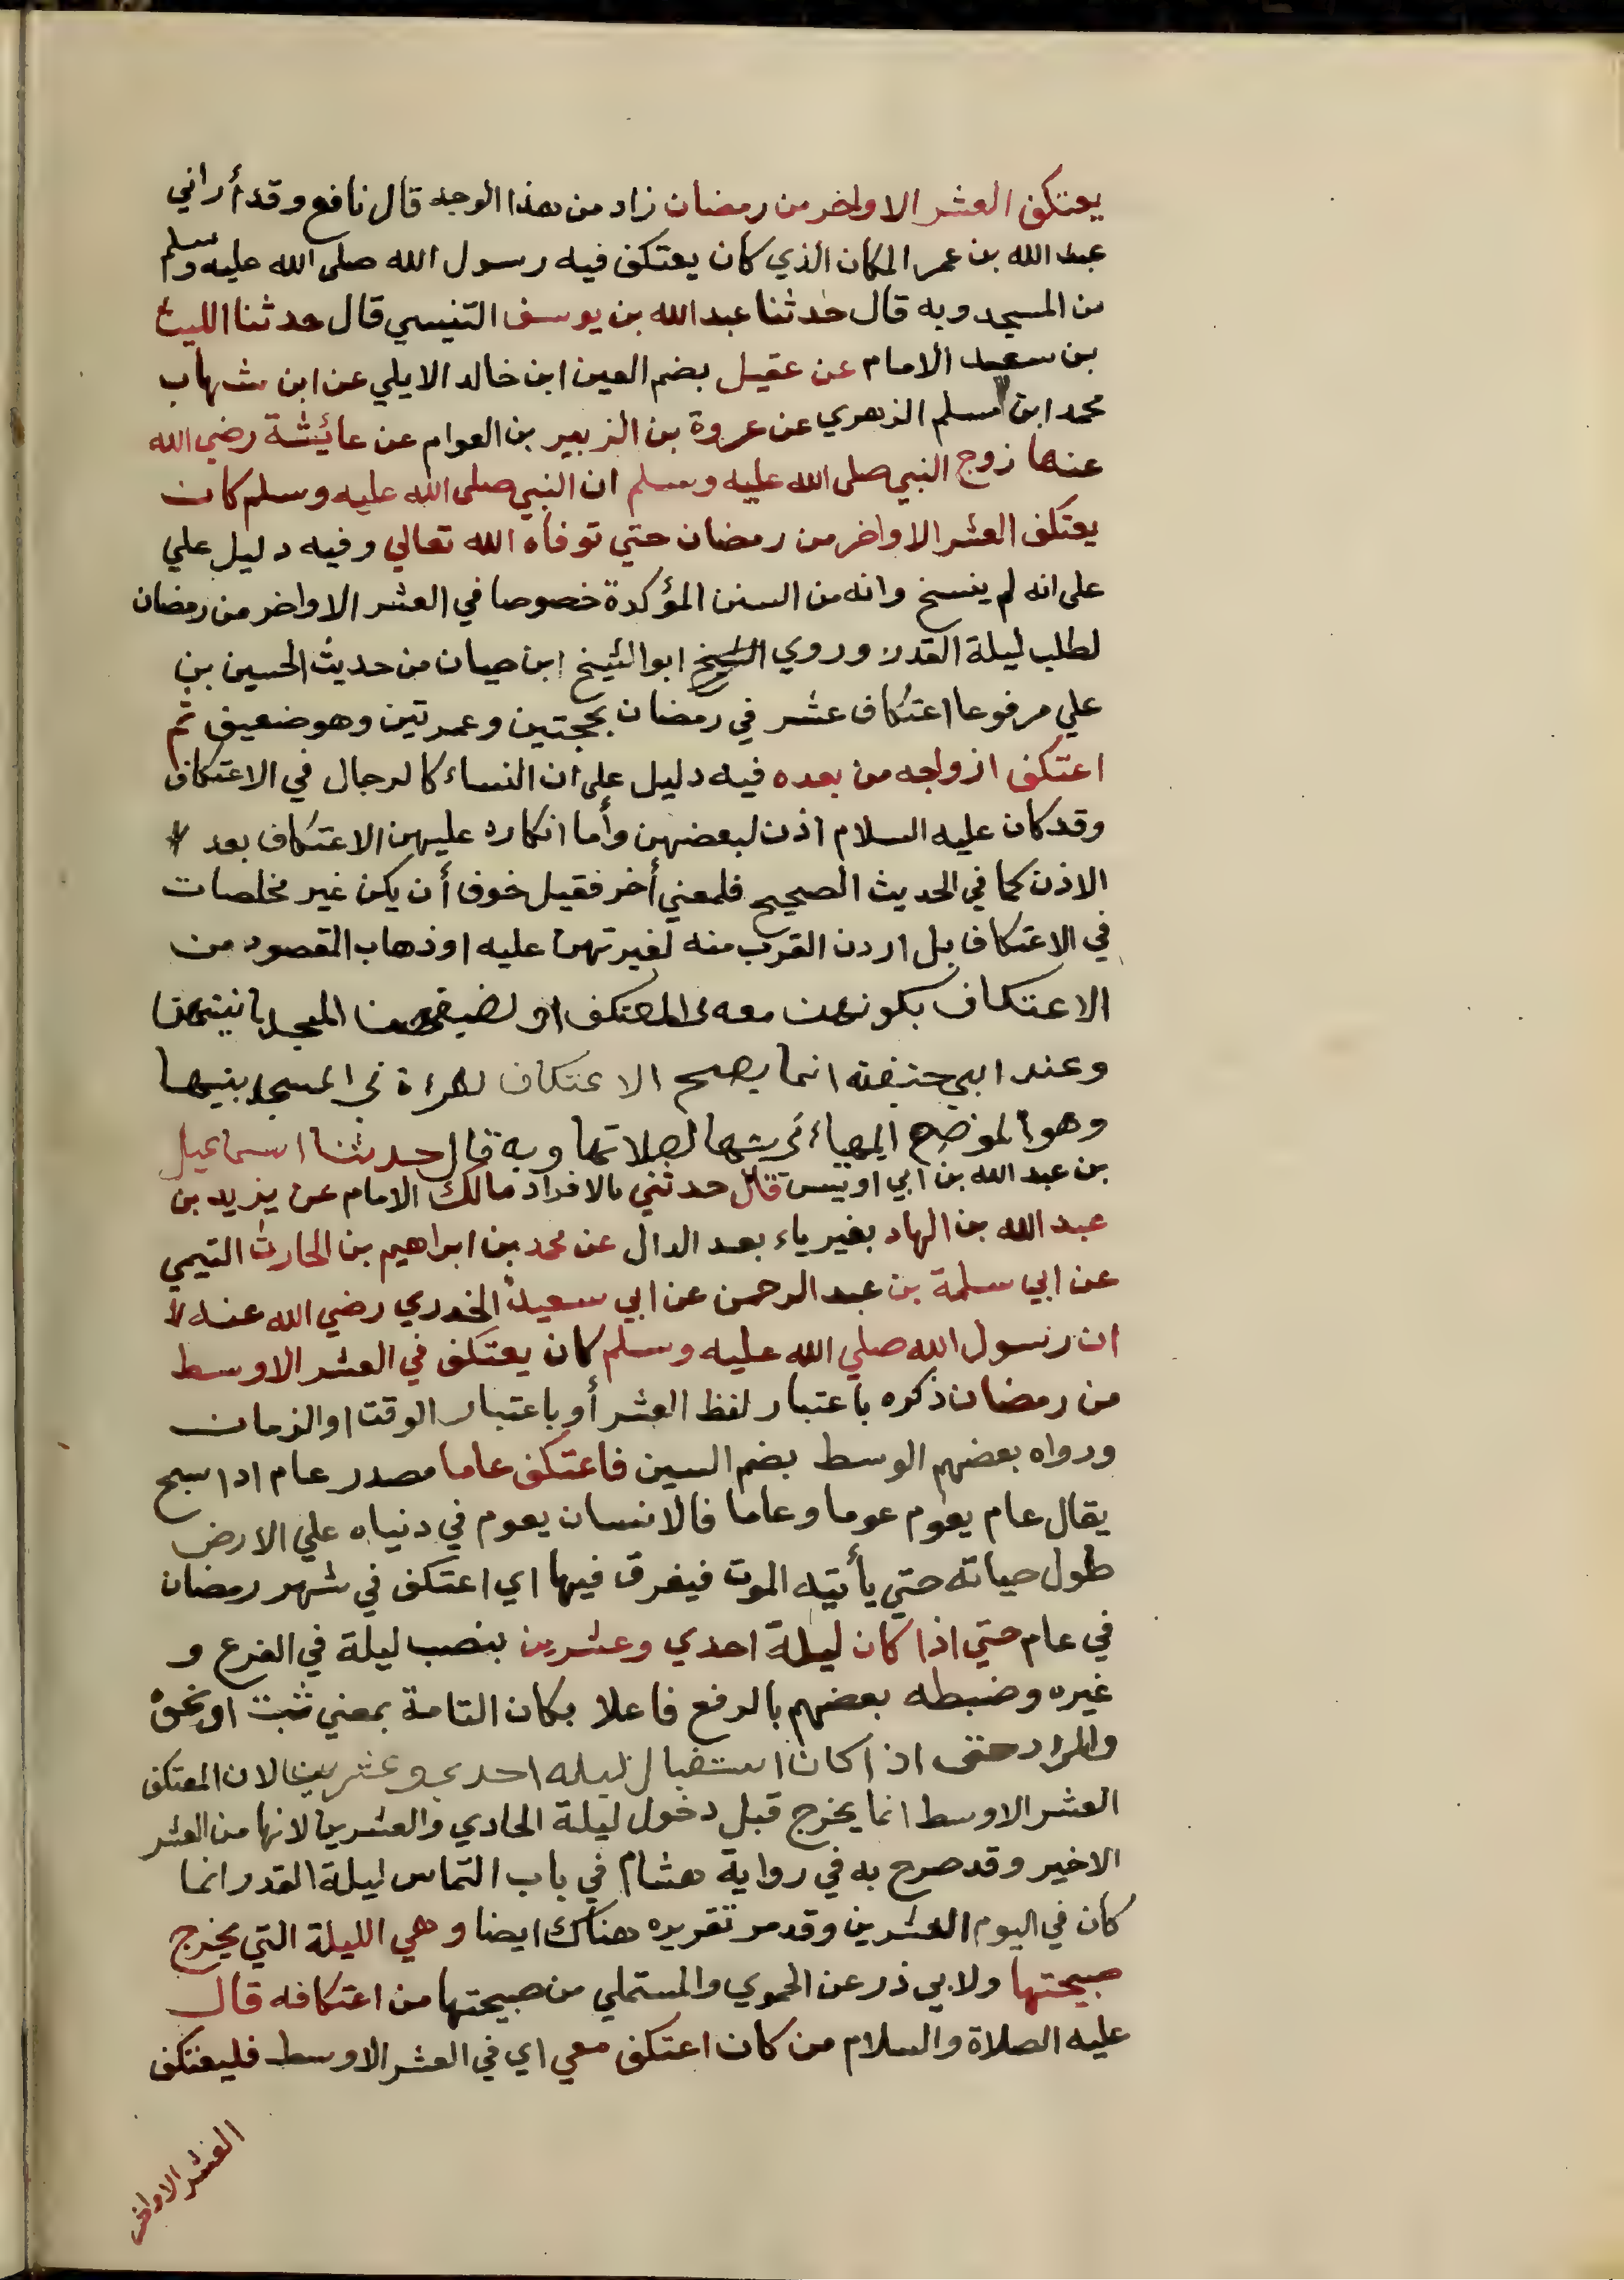 يعتكف العشر الاواخر من رمضان زاد من هذا الوجه قال نافع وقد أراني
عبد الله بن عمر المكان الذي كان يعتكف فيه رسول الله صلى الله عليه وسلم
من المسجد وبه قال حدثنا عبد الله بن يوسف التنيسي قال حدثنا الليث
بن سعيد الامام عن عقيل بضم العين ابن خالد الايلي عن ابن شهاب
محمد ابن مسلم الزهري عن عروة بن الزبير بن العوام عن عائيشة رضي الله
عنها زوج النبي صلى الله عليه وسلم ان النبي صلى الله عليه وسلم كان
يعتكف العشر الاواخر من رمضان حتي توفاه الله تعالي وفيه دليل علي
على انه لم ينسخ وانه من السنن المؤكدة خصوصا في العشر الاواخر من رمضان
لطلب ليلة القدر وروي الشيخ ابوالشيخ ابن حيان من حديث الحسين بن
علي مرفوعا اعتكاف عشر في رمضان بحجتين وعمرتين وهو ضعيف ثم
اعتكف ازواجه من بعده فيه دليل على ان النساء كالرجال في الاعتكاف
وقد كان عليه السلام اذن لبعضهن وأما انكاره عليهن الاعتكاف بعد
الاذن كما في الحديث الصحيح فلمعني أخر فقيل خوف أن يكن غير مخلصات
في الاعتكاف بل اردن القرب منه لغيرتهن عليه او ذهاب المقصود من
الاعتكاف بكونهن معه في المعتكف او لضيقهن المسجد بابنيتهن
وعند ابي حنيفة انما يصح الاعتكاف لمراة في المسجد بيتها
وهو الموضح المهياء في بيتها لصلاتها وبه قال حدثنا اسماعيل
بن عبد الله بن ابي اويس قال حدثني بالافراد مالك الامام عن يزيد بن
عبد الله بن الهاد بغير ياء بعد الدال عن محمد بن ابراهيم بن الحارث التيمي
عن ابي سلمة بن عبد الرحمن عن ابي سعيد الخدري رضي الله عنه
ان رسول الله صلي الله عليه وسلم كان يعتكف في العشر الاوسط
من رمضان ذكره باعتبار لفظ العشر أو باعتبار الوقت او الزمان
ورواه بعضهم الوسط بضم السين فاعتكف عاما مصدر عام اذا سبح
يقال عام يعوم عوما وعاما فالانسان يعوم في دنياه علي الارض
طول حياته حتي يأتيه الموت فيغرق فيها اي اعتكف في شهر رمضان
في عام حتي اذا كان ليلة احدي وعشرين بنصب ليلة في الفرع و
غيره وضبطه بعضهم بالرفع فاعلا بكان التامة بمعني ثبت او نحوه
والمراد حتى اذا كان استقبال ليله احدي وعشرين لان المعتكف
العشر الاوسط انما يخرج قبل دخول ليلة الحادي والعشرين لانها من العشر
الاخير وقد صرح به في رواية هشام في باب التماس ليلة القدر انما
كان في اليوم العشرين وقد مر تقريره هناك ايضا وهي الليلة التي يخرج
صبيحتها ولابي ذر عن الحموي والمستملي من صبيحتها من اعتكافه قال
عليه الصلاة والسلام من كان اعتكف معي اي في العشر الاوسط فليعتكف
العشر الاواخر